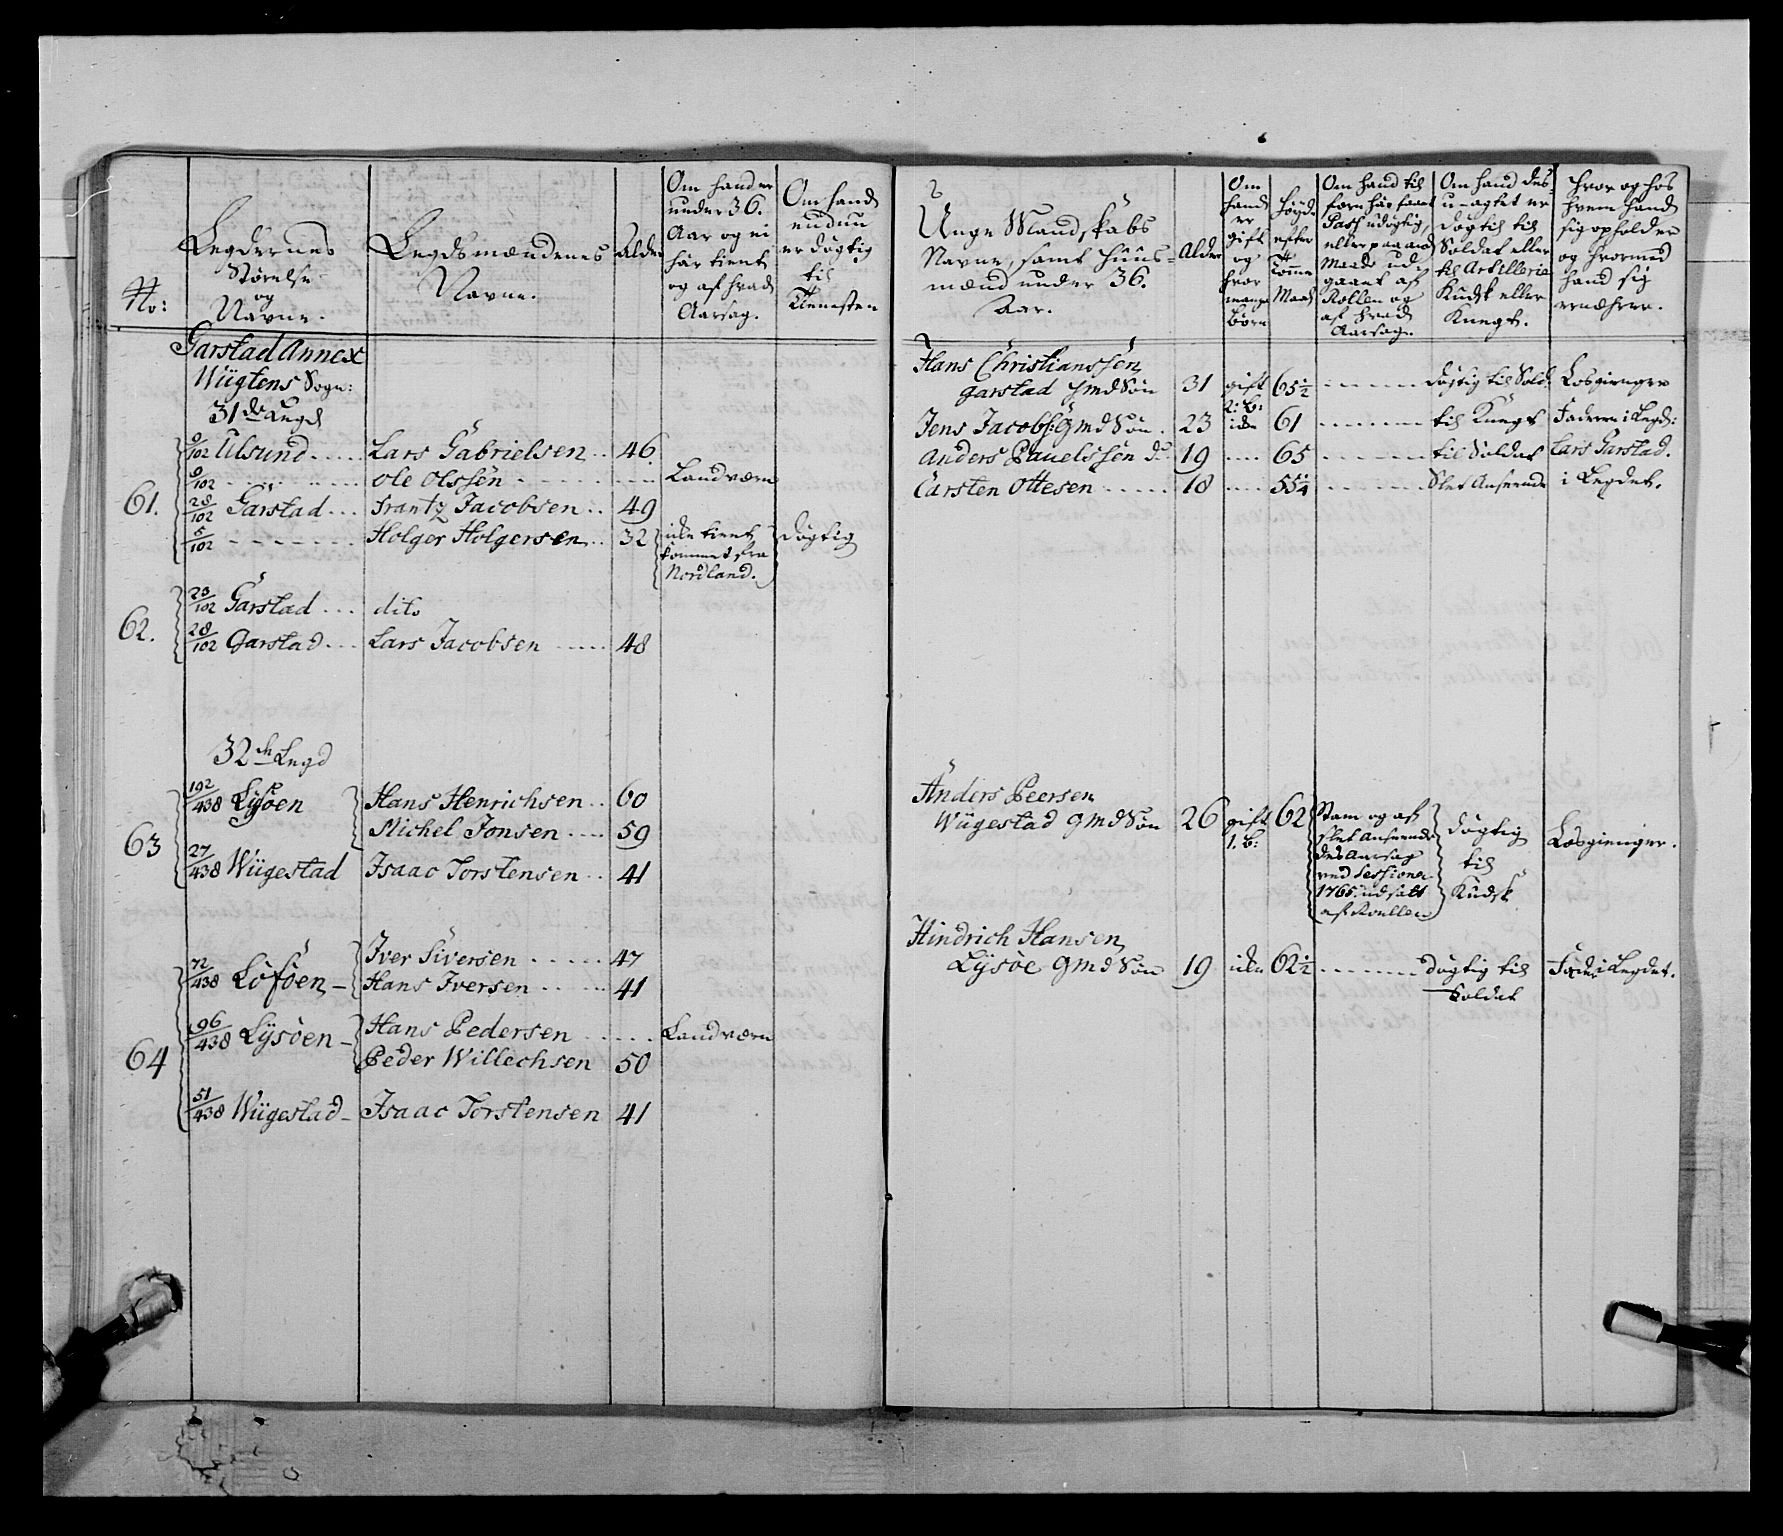 No:
Legdernes
Størelse
og
Navne.
Legdsmændenes
Navne.
Alder
Om hand er
under 36.
Aar og ei
har tient
og af hvad
Aarsag.
Om hand
endnu
er døgtig
til
Tienesten
Garstad Annex
Wügtens Sogn:
31de Legd
61.
9/102 Ulsund..... Lars Gabrielsen.. 46.
9/102 ........ Ole Olssen ........ Landværn
28/102 Garstad... Frantz Jacobsen.. 49
5/102 ....... Holger Holgersen.. 32 ikke tient Døgtig
kommet fra
Nordland.
62.
23/102 Garstad... dito
28/102 Garstad... Lars Jacobsen ..... 48
32te Legd
63
192/438 Lÿsöen Hans Henrichsen.. 60
Michel Jonsen.... 59
27/438 Wügestad Isaac Torstensen.. 41
64
72/438 Löföen - Iver Siversen ..... 47
Hans Iversen ..... 41
96/438 Lÿsöen - Hans Pedersen ...... Landværn
Peder Willechsen 50
51/438 Wügestad - Isaac Torstensen 41
Unge Mandskabs
Navne, samt Huus-
mænd under 36.
Aar.
Alder
Om
hand
er
gift
og
hvor
mange
Børn
Høyde
efter
Tomme
Maal
Om hand til
forn har faaet
Pass udygtig
eller paa anden
Maade ud
gaaet af
Rollen og
af hvad
Aarsag.
Om hand des-
u-agtet er
døgtig til
Soldat eller
til Artillerie
Kudsk eller
Knegt.
Hvor og hos
hvem hand
sig opholder
og hvormed
hand sig
ernærer.
Hans Christianssen
Garstad Gmd Søn 31 gift 65½ ....... Døgtig til Sold. Løsgienger
2: B:
Jens Jacobs: Gmd Søn. 23 ikke 61 ....... til Knegt Faderen i Legd:
Anders Pauelssen do 19 .... 65 ....... til Soldat Lars Garstad.
Carsten Ottesen ..... 18 .... 55¼ ....... Slet Anseende i Legdet.
Anders Peersen
Wügestad Gmd Søn 26 gift 62 Stam og af Døgtig Løsgienger.
1. B: slet Anseende til
des Aarsag Kudsk
ved Sessionen
1765. udsatt
af Roullen
Hindrich Hansen
Lÿsöe Gmd Søn 19 ikke 62½ ....... Døgtig til Fader i Legdet.
Soldat